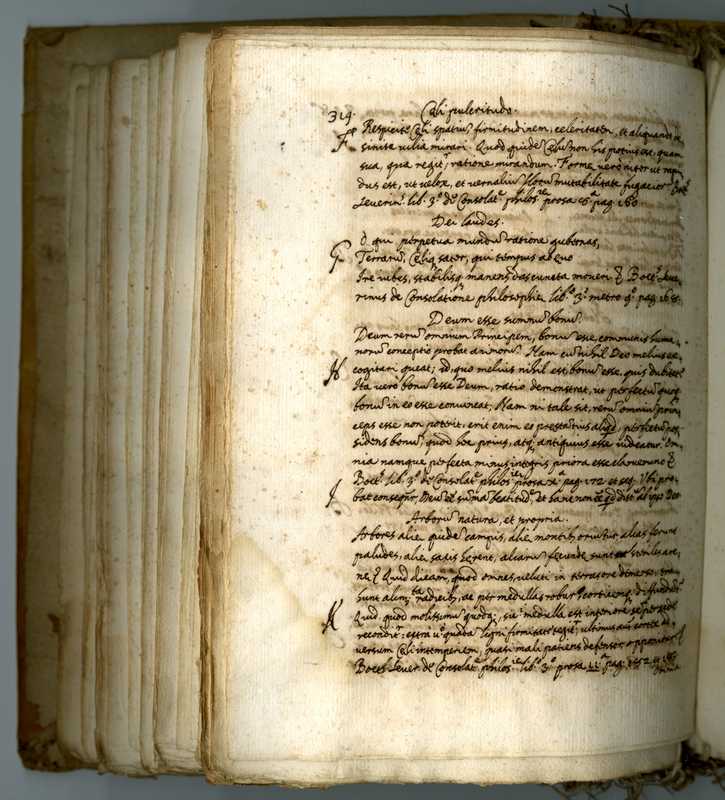 319. Cęli pulcritudo.
F Respicite Cęli spatiũ, firmitudinem, celeritatem, et aliquando de
sinite vilia mirari. Quod quidẽ Cęlũ non his potius est, quam
sua, qua regit, ratione mirandum. Formę verò nitor ut rapi
dus est, ut velox, et vernaliũ florũ mutabilitate fugacior. Boet.
Severin. lib. 3.º de Consolat. philos. prosa 8.ª pag. 160
Dei laudes.
G O qui perpetua mundũ ratione gubernas,
Terrarũ, Cęliq sator, qui tempus ab ęvo
Ire iubes, stabilisq manens das cuncta moveri. & Boet. Seve
rinus de Consolatione philosophię lib. 3.º metro 9.º pag.
Deum esse summũ bonũ.
Deum rerũ omnium Principem, bonũ esse, communis huma
norũ conceptio probat animorũ. Nam cũ nihil Deo melius ex
H cogitari queat; id, quo melius nihil est, bonũ esse, quis dubitet?
Ita verò bonũ esse Deum, ratio demonstrat, ut perfectũ quoq
bonũ in eo esse convincat. Nam ni tale sit, rerũ omniũ prin
ceps esse non poterit; erit enim eo pręstantius aliqd, perfectũ pos
sidens bonũ, quod hoc prius, atq antiquius esse videatur. Om
nia namque perfecta minus integris priora esse claruerunt &
Boet. lib. 3.º de Consolat. philos. prosa x.ª pag. 172 et seq. Ubi pro
I bat
Arborũ natura, et propria.
Arbores alię quidẽ campis, alię montib, oriuntur, alias ferunt
paludes, alię saxis hęrent, aliarũ fecundę sunt steriles are
nę & Quid dicam, quod omnes, veluti in terras ore demerso, tra
hunt alimẽta radicib, ac per medullas robur, corticemq diffundũt?
K Quid, quod molissimũ quodq, sic medulla est, interiore
reconditr: extra vº quadã ligni firmitate tegitr; ultimus aut cortex ad
versum Cęli intemperiem, quasi mali patiens defensor opponitur &
Boet. Sever. de Consolat. philos. lib. 3.º prosa 11.ª pag.